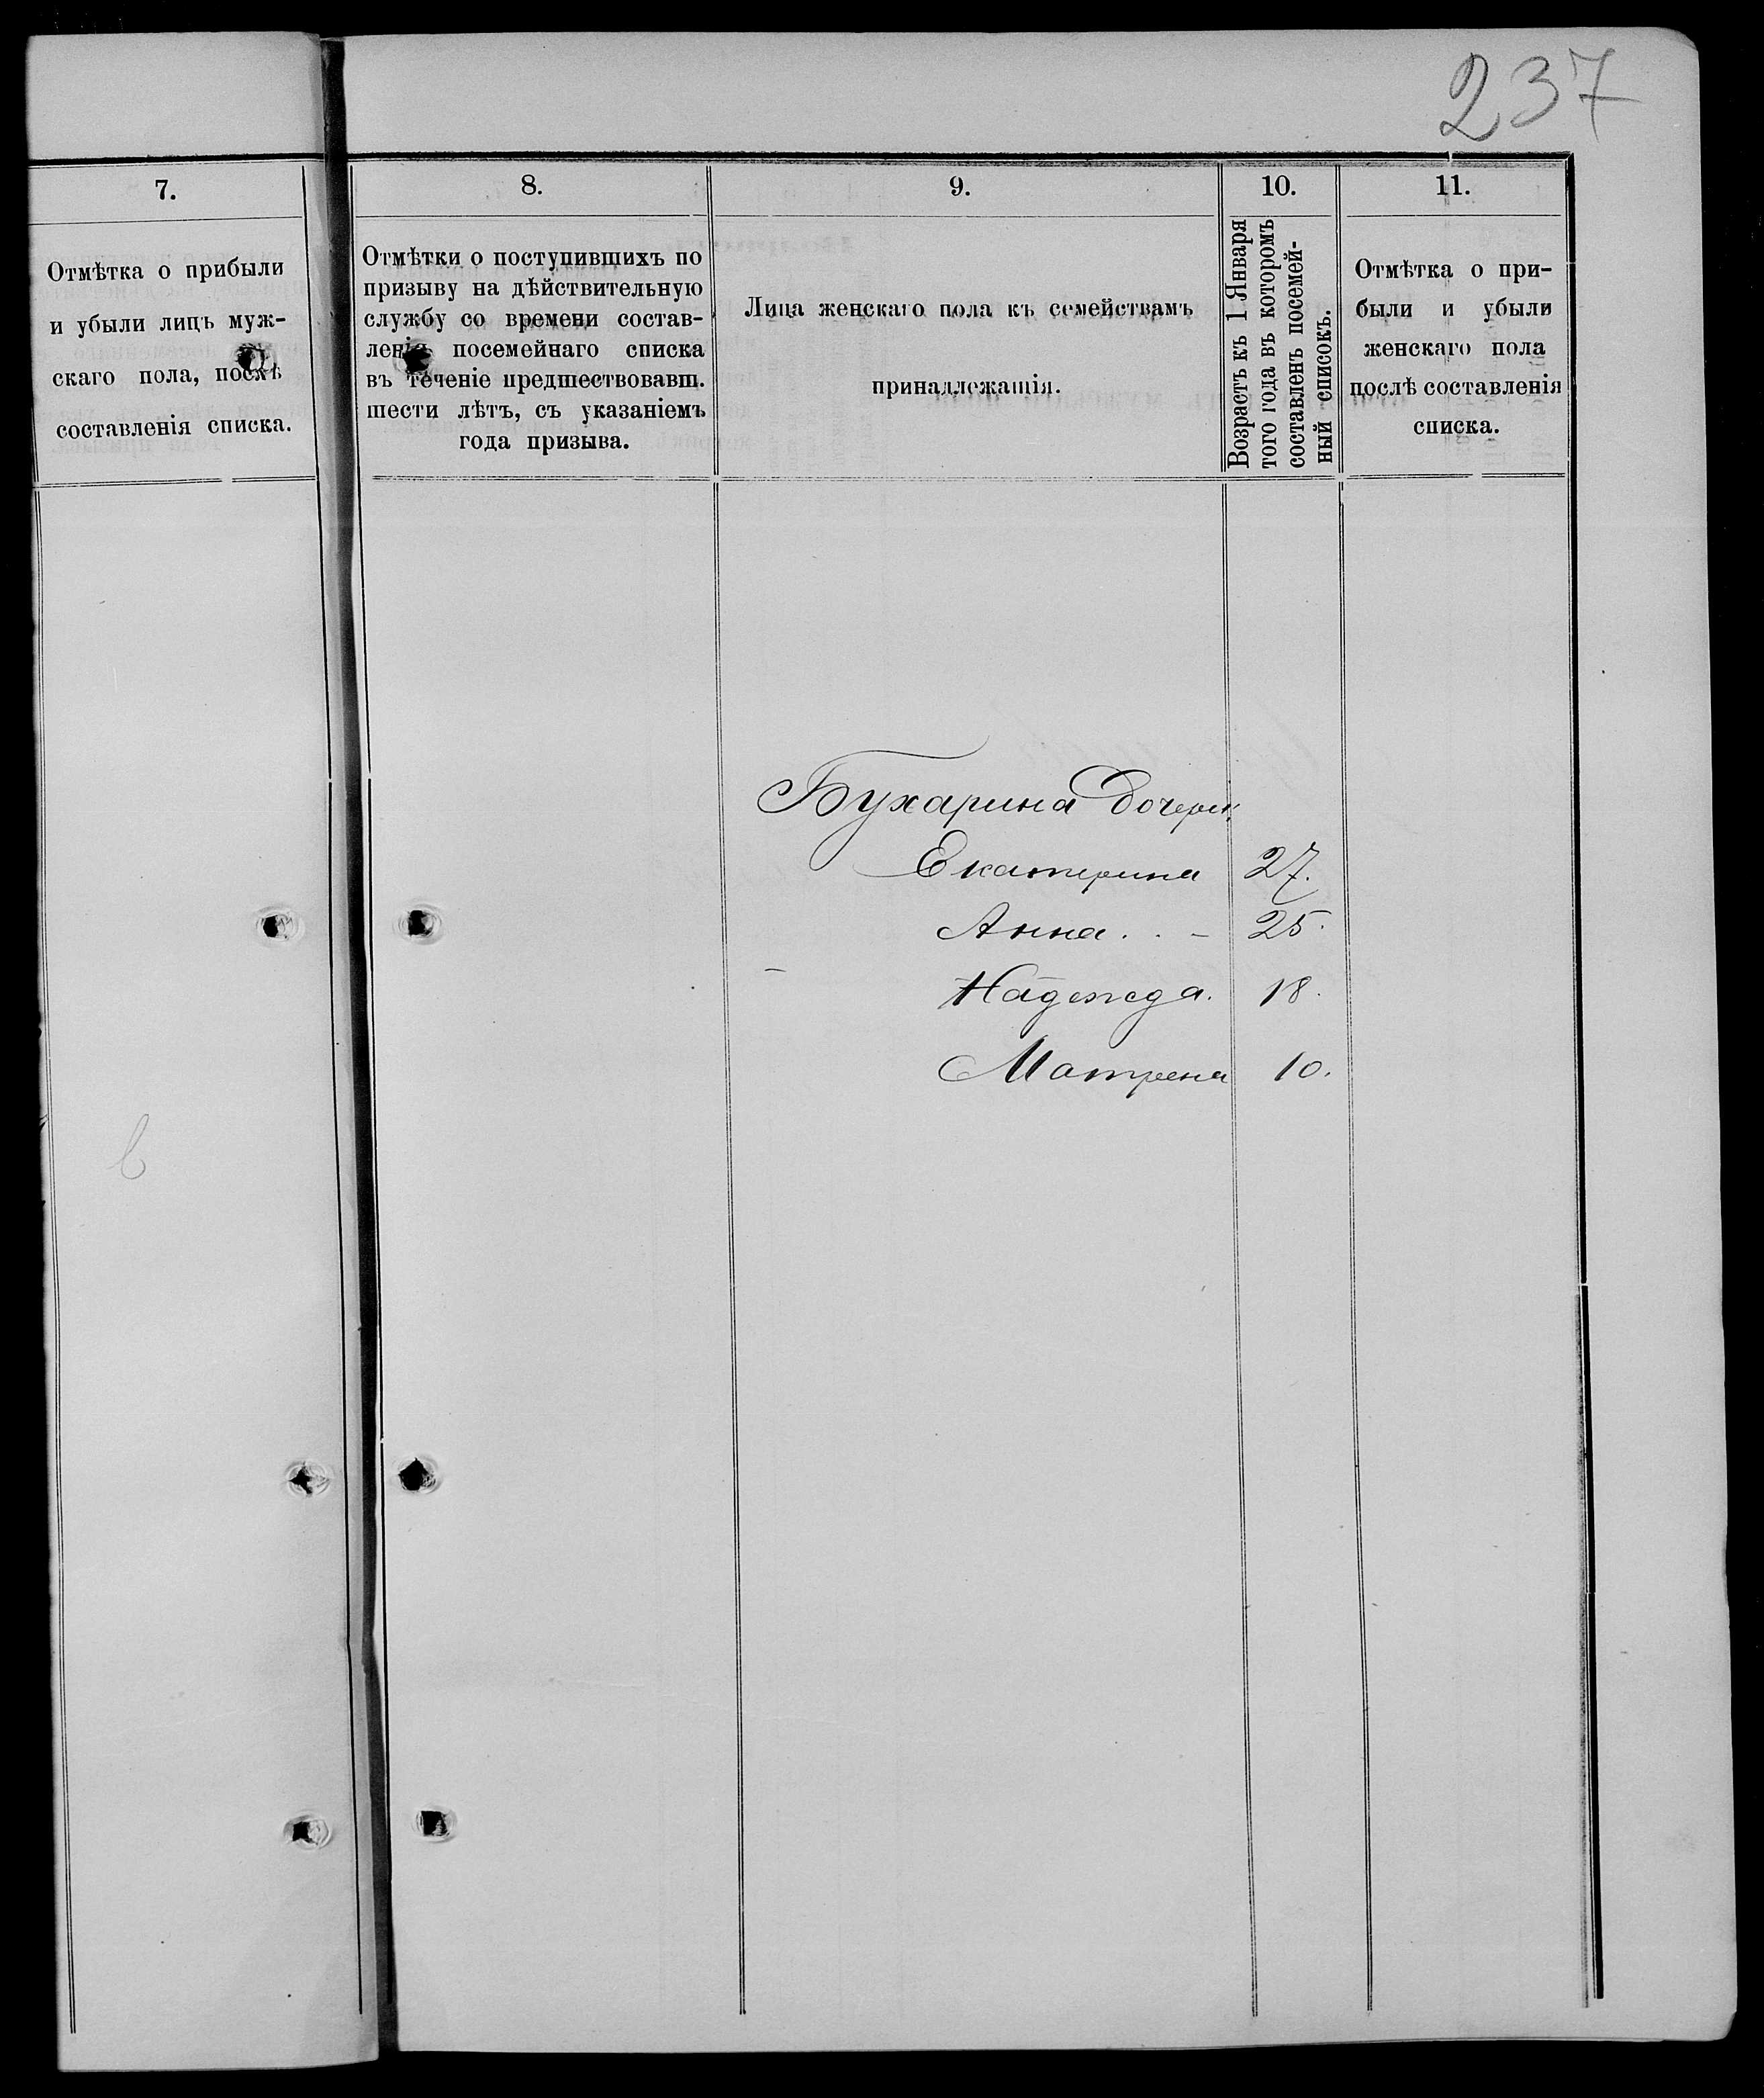 237
7.
Отмѣтка о прибыли
и убыли лицъ муж-
скаго пола, послѣ
составленія списка.
8.
Отмѣтки о поступившихъ по
призыву на дѣйствительную
службу со времени состав-
ленія посемейнаго списка
въ теченіе предшествовавш.
шести лѣтъ, съ указаніемъ
года призыва.
9.
Лица женскаго пола къ семействамъ
принадлежащія.
10.
Возрастъ къ 1 Января
того года въ которомъ
составленъ посемей-
ный списокъ.
11.
Отмѣтка о при-
были и убыли
женскаго пола
послѣ составленія
списка.
Бухарина
Екатерина 27.
Анна . . - 25.
Надежда. 18.
Матрена 10.